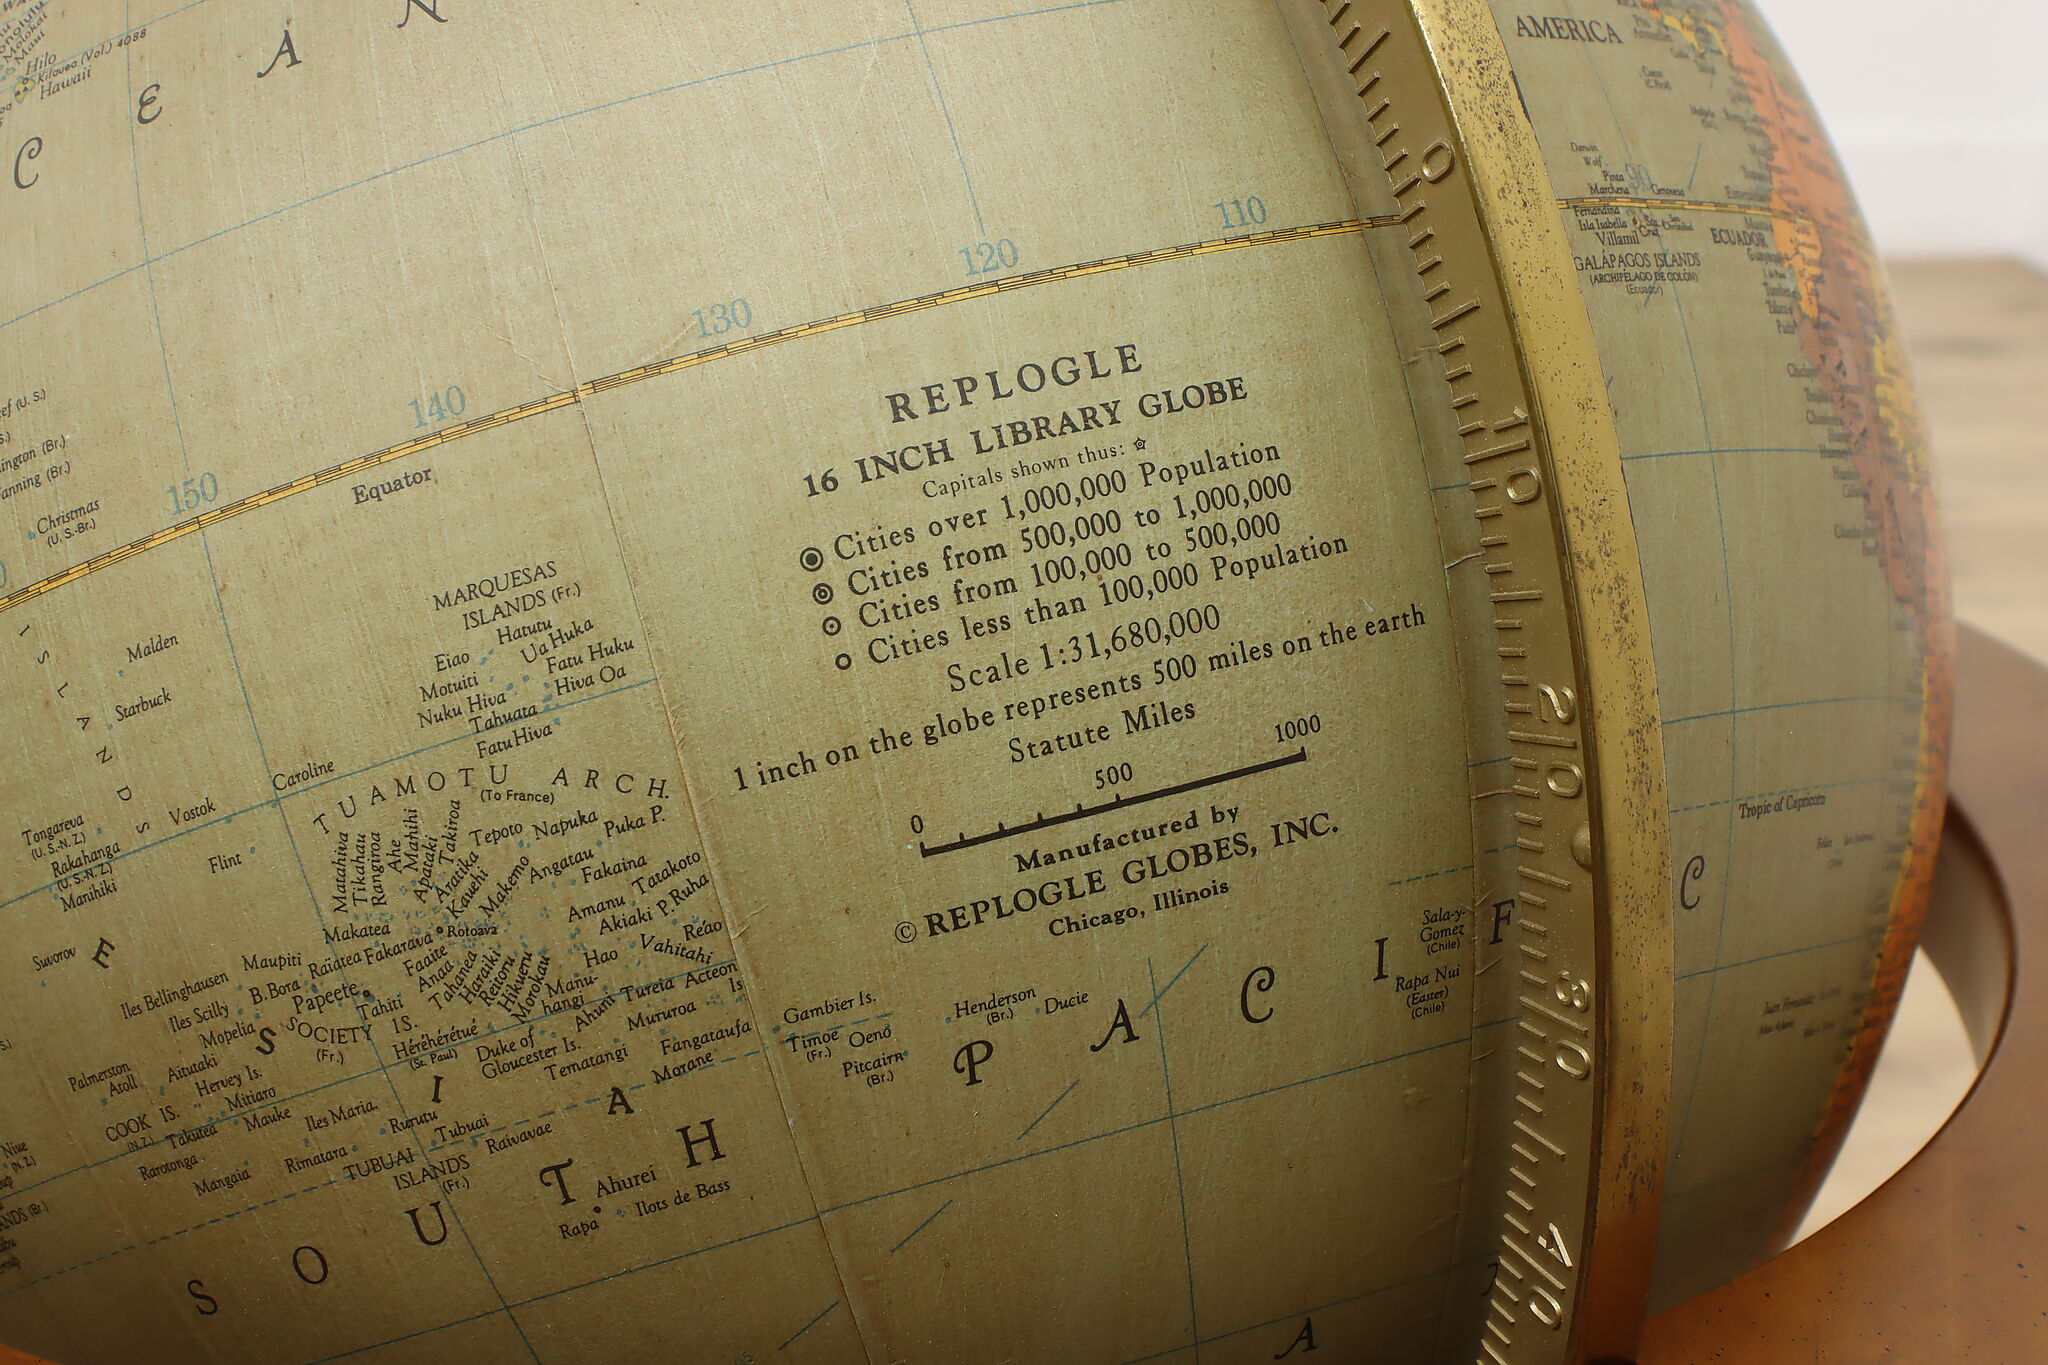 C E A N
Honolulu
Molokai
Maui
Hilo
Kilauea (Vol.) 4088
Hawaii
AMERICA
0
Darwin
Wolf
Pinta
90
Marchena
Genovesa
Fernandina
Isla Isabella
Villamil
ECUADOR
GALÁPAGOS ISLANDS
(ARCHIPELAGO DE COLÓN)
(Ecuador)
110
120
130
140
150
Equator
Christmas
(U. S.-Br.)
REPLOGLE
16 INCH LIBRARY GLOBE
Capitals shown thus:
Cities over 1,000,000 Population
Cities from 500,000 to 1,000,000
Cities from 100,000 to 500,000
Cities less than 100,000 Population
Scale 1:31,680,000
1 inch on the globe represents 500 miles on the earth
Statute Miles
0 500 1000
Manufactured by
© REPLOGLE GLOBES, INC.
Chicago, Illinois
10
20
30
40
MARQUESAS
ISLANDS (Fr.)
Hatutu
Eiao
Ua Huka
Motuiti
Fatu Huku
Nuku Hiva
Hiva Oa
Tahuata
Fatu Hiva
I S L A N D S
Malden
Starbuck
Caroline
Vostok
Flint
Tongareva
(U. S.-N. Z.)
Rakahanga
(U. S.-N. Z.)
Manihiki
Suvorov
TUAMOTU ARCH.
(To France)
Matahiva
Tikahau
Rangiroa
Ahe
Manihi
Apataki
Takiroa
Aratika
Kauehi
Makemo
Tepoto
Napuka
Puka P.
Angatau
Fakaina
Tatakoto
Amanu
Akiaki
P. Ruha
Reao
Hao
Vahitahi
Makatea
Fakarava
Rotoava
Faaite
Anaa
Tahanea
Haraiki
Reitoru
Hikueru
Morokau
Manu-
hangi
Ahuni
Tureia
Acteon
Is
Mururoa
Fangataufa
Morane
Tematangi
Duke of
Gloucester Is.
Héréhérétué
(St. Paul)
Iles Bellinghausen
Maupiti
Raiatea
Iles Scilly
B. Bora
Papeete
Mopelia
Tahiti
SOCIETY IS.
(Fr.)
E S I A
Palmerston
Atoll
Aitutaki
Hervey Is.
COOK IS.
(N. Z.)
Mitiaro
Takutea
Mauke
Iles Maria
Rurutu
Tubuai
Raivavae
Rarotonga
Mangaia
Rimatara
TUBUAI
ISLANDS
(Fr.)
Niue
(N. Z.)
Ahurei
Rapa
Ilots de Bass
Gambier Is.
Timoe
(Fr.)
Oeno
Pitcairn
(Br.)
Henderson
(Br.)
Ducie
Sala-y-
Gomez
(Chile)
Rapa Nui
(Easter)
(Chile)
S O U T H
P A C I F
C
A
Tropic of Capricorn